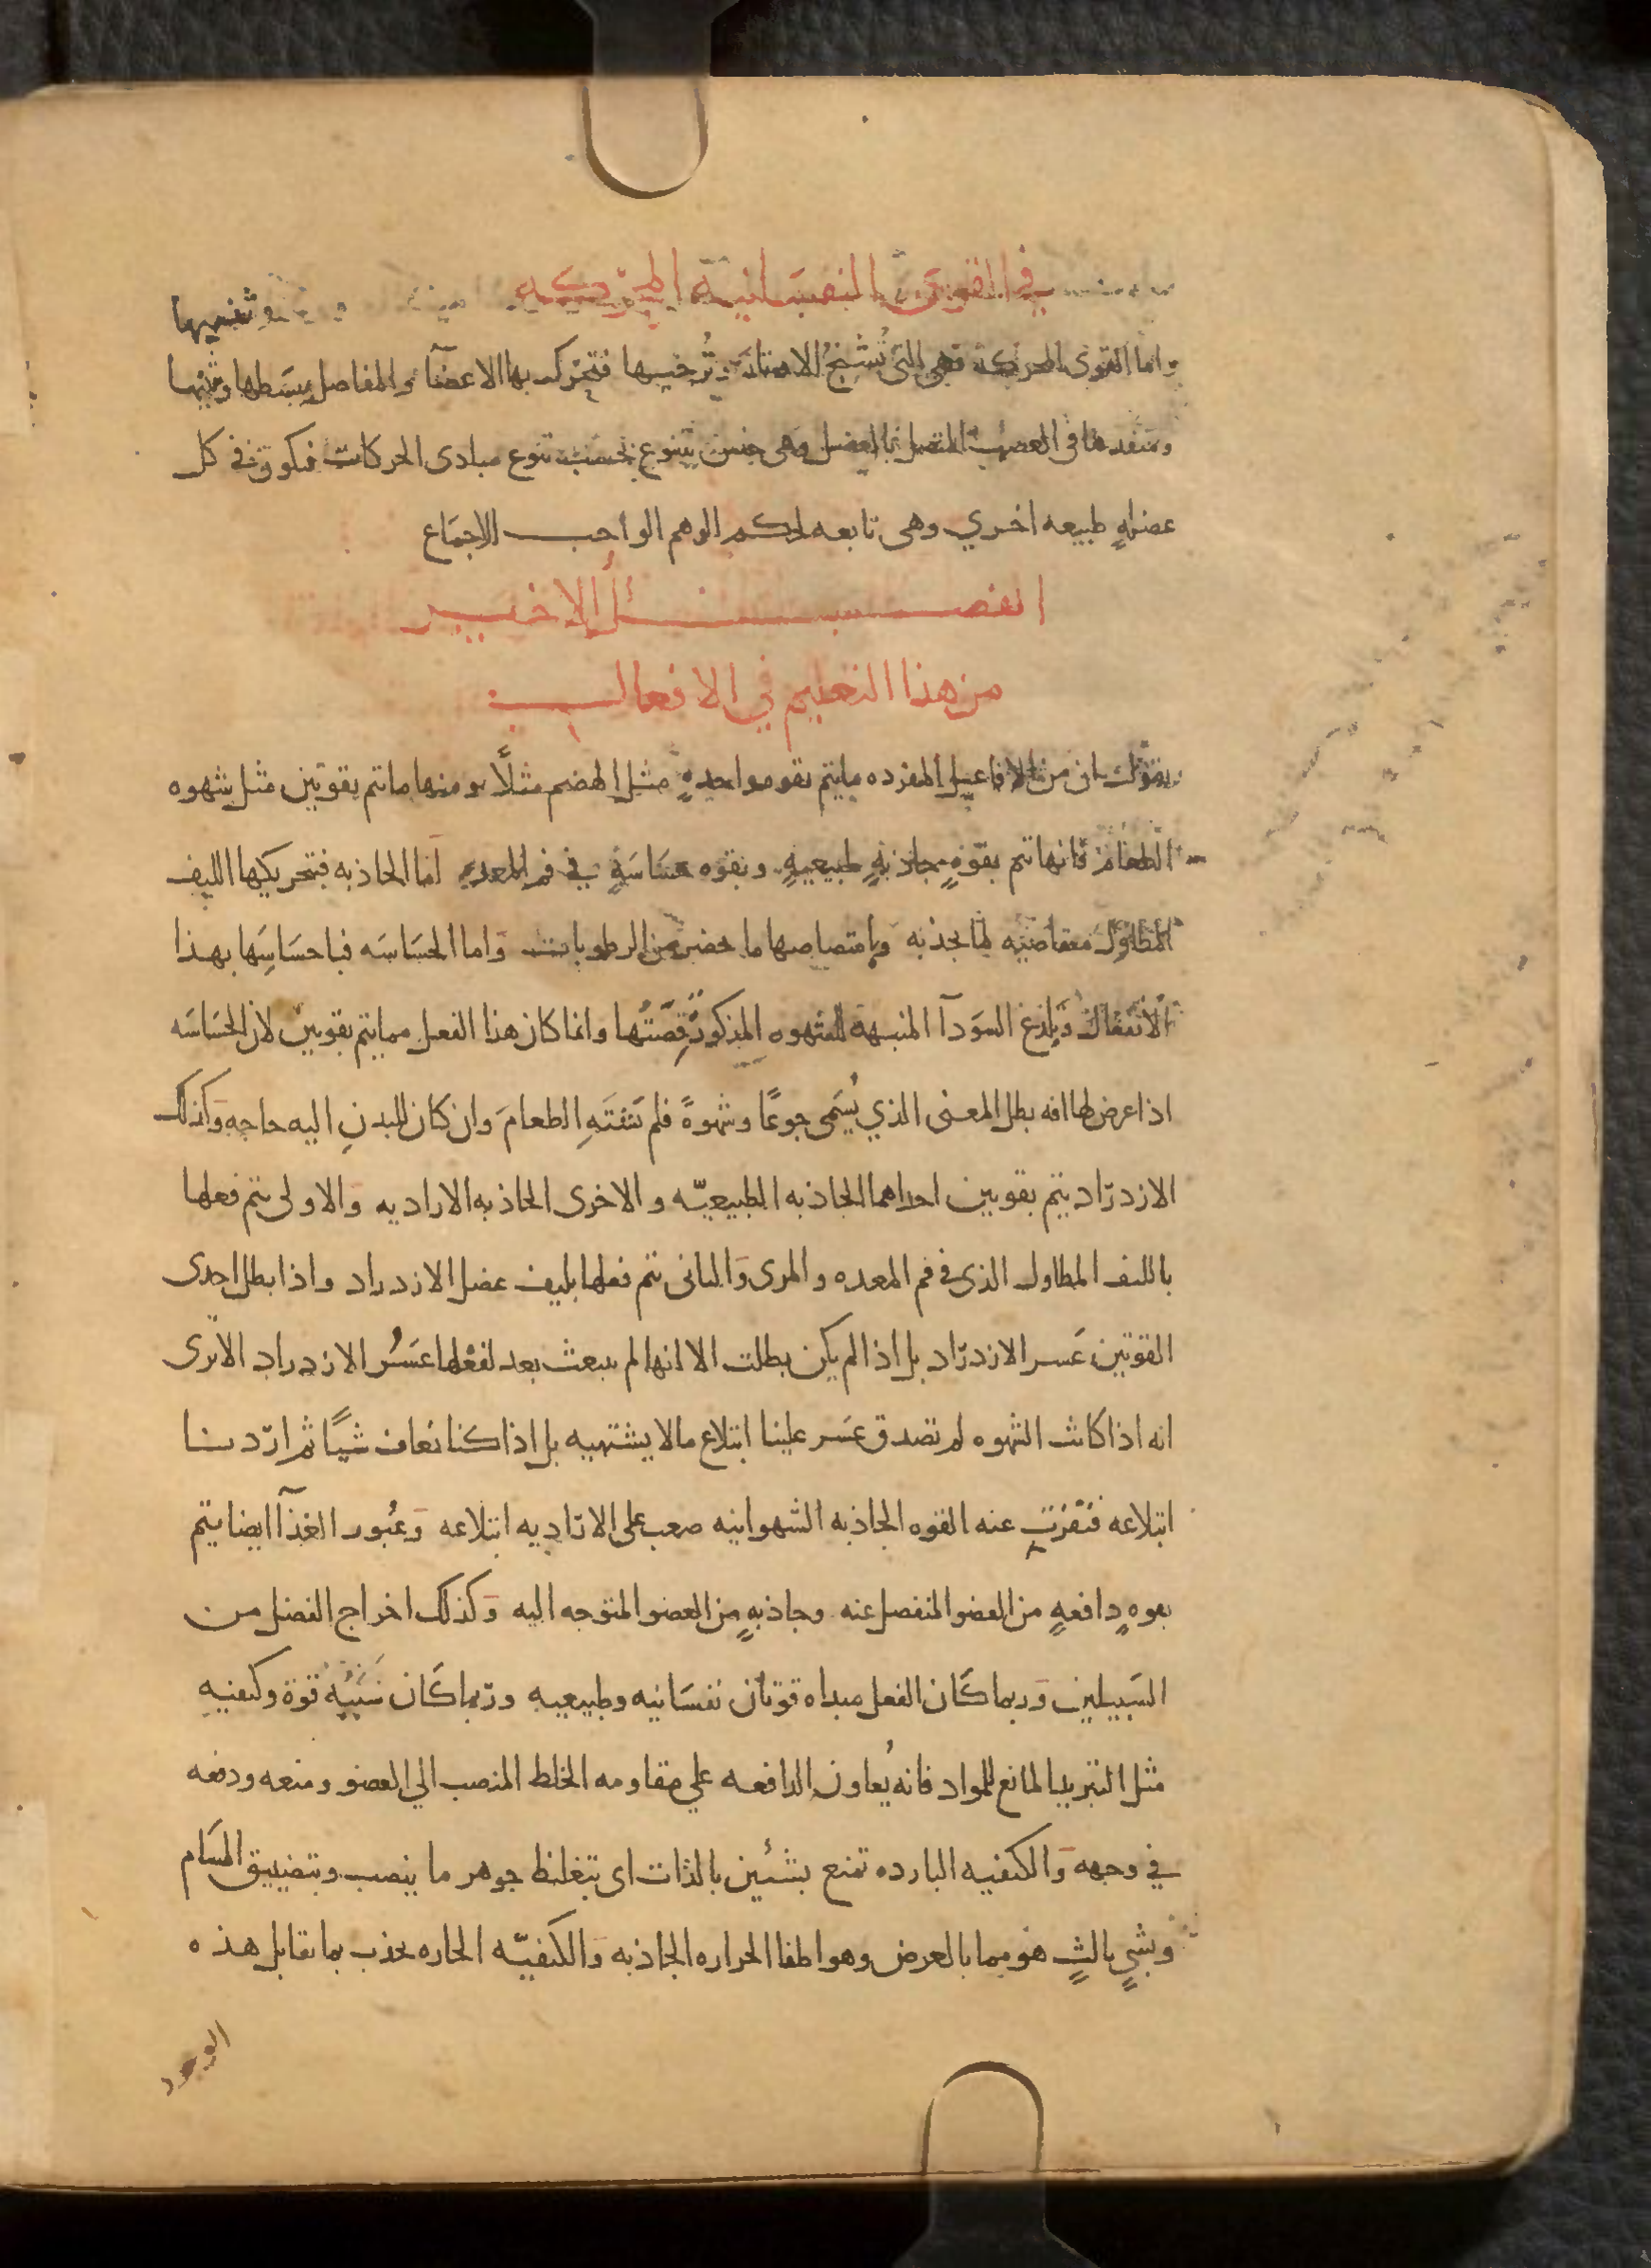 في القوى النفسانية المحركه
وتثنيها
واما القوى المحركة فهي التي تُشنج الاوتار وتُرخيها فتحرك بها الاعضآ والمفاصل يبسطها ويثنيها
ومنفدها في العصب المتصل بالعضل وهى جنس يتنوع بحسب تنوع مبادى الحركات فيكون في كل
عضلهٍ طبيعه اخري وهى تابعه لحكم الوهم الواجب الاجمَاع
الفصل الاخير
من هذا التعليم في الافعال
نقول ان من الافاعيل المفرده ما يتم بقوه واحدهٍ مثل الهضم مثلًا ومنها ما تتم بقوتين مثل شهوه
الطعام فانها تتم بقوةٍ جاذبةٍ طبيعيهٍ وبقوه حسَاسَةٍ في فم المعده اما الجاذبه فبتحريكها الليف
المطاول متقاضيه لما تجذبه وبامتصاصها ما حضر من الرطوبات واما الحسَاسَه فباحسَاسَها بهذا
الانفعال وبلذع السودآ المنبهة للشهوه المذكور قِصّتُها وانما كان هذا الفعل مما يتم بقوتين لان الحسَاسَه
اذا عرض لها افه بطل المعنى الذي يُسَمى جوعًا وشهوةً فلم تَشتَهِ الطعامَ وان كان للبدنِ اليه حاجه وكذلك
الازدرَاد يتم بقوتين احداهما الجاذبه الطبيعيّه والاخرى الجاذبه الاراديه والاولى يتم فعلها
بالليف المطاول الذى في فم المعده والمرى والثانى تتم فعلها بليف عضل الازدراد واذا بطل احدى
القوتين عَسر الازدرَاد بل اذا لم يكن بطلت الا انها لم ينبعث بعد لفعلها عَسُر الازدراد الا ترى
انه اذا كانت الشهوه لم تصدق عَسر علينا ابتلاع ما لا يشتهيه بل اذا كنا نعاف شيًا ثم اردنا
ابتلاعه فنفرت عنه القوه الجاذبه الشهوانيه صعب على الاراديه ابتلاعه وعُبور الغذآ ايضا يتم
بقوهٍ دافعهٍ من العضو المنفصل عنه وجاذبهٍ من العضو المتوجه اليه وكذلك اخراج الفضل من
السَبيلين وربما كَان الفعل مبداه قوتان نفسَانيه وطبيعيه وربما كَان سَببُه قوة وكيفيه
مثل التبريد المانع للمواد فانه يُعاون الدافعه علي مقاومه الخلط المنصب الي العضو ومنعه ودفعه
في وجهه والكيفيه البارده تمنع بشئين بالذات اى بتغليظ جوهر ما ينصب وبتضييق المسَام
وبشيٍ ثالثٍ هو مما بالعرض وهو اطفا الحراره الجاذبه والكيفيّه الحاره تجذب بما تقابل هذه
الوجوه